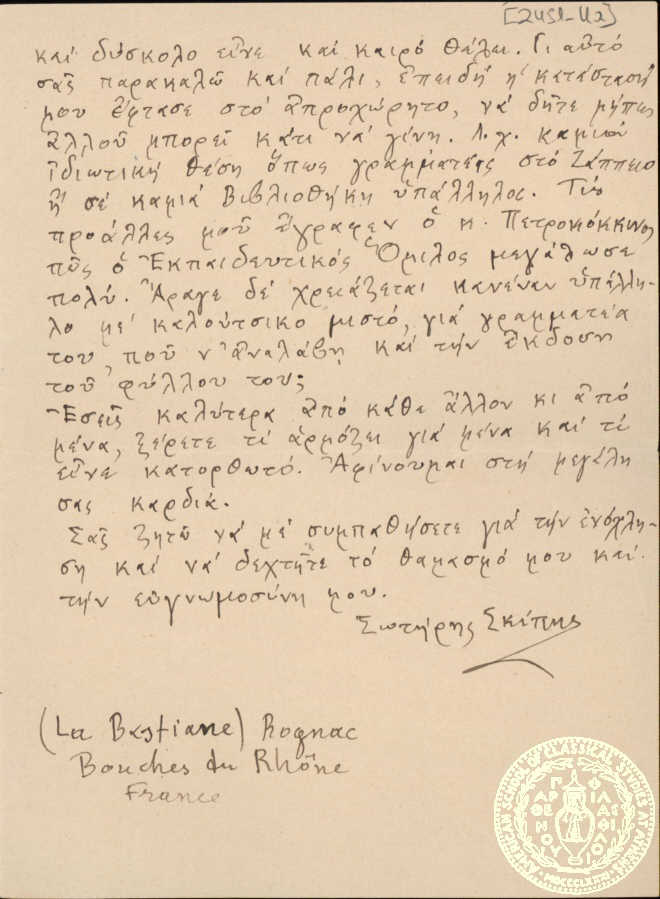 καὶ δύσκολο εἶνε καὶ καιρὸ θέλει. Γι αὐτὸ
σᾶς παρακαλῶ καὶ πάλι, ἐπειδὴ ἡ κατάστασή
μου ἔφτασε στὸ ἀπροχώρητο, νὰ δῆτε μήπως
ἀλλοῦ μπορεῖ κάτι νὰ γίνη. Λ. χ. καμιὰ
ἰδιωτικὴ θέση ὅπως γραμματέας στὸ Ζάππειο
ἢ σὲ καμιὰ Βιβλιοθήκη ὑπάλληλος. Τὶς
προάλλες μοῦ ἔγραφεν ὁ κ. Πετροκόκκινος
πῶς ὁ Ἐκπαιδευτικός Ὅμιλος μεγάλωσε
πολύ. Ἄραγε δὲ χρειάζεται κανέναν ὑπάλλη-
λο μὲ καλούτσικο μιστό, γιὰ γραμματέα
του ποῦ ν' ἀναλάβη καὶ τὴν ἔκδοση
τοῦ φύλλου τους;
Ἐσεῖς καλύτερα ἀπὸ κάθε ἄλλον κι ἀπὸ
μένα, ξέρετε τί ἁρμόζει γιὰ μένα καὶ τί
εἶνε κατορθωτό. Ἀφίνουμαι στὴ μεγάλη
σας καρδιά.
Σᾶς ζητῶ νὰ μὲ συμπαθήσετε γιὰ τὴν ἐνόχλη-
ση καὶ νὰ δεχτῆτε τὸ θαμασμό μου καὶ
τὴν εὐγνωμοσύνη μου.
Σωτήρης Σκίπης
(La Bastiane) Rognac
Bouches du Rhône
France
AMERICAN SCHOOL OF CLASSICAL STUDIES AT ATHENS
MDCCCLXXXI